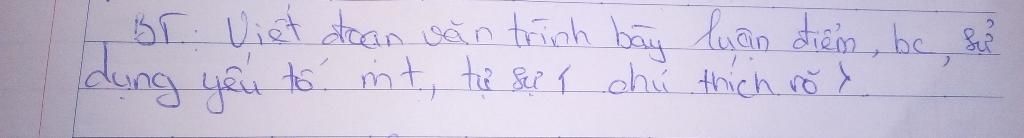 BT: Viết đoạn văn trình bày luận điểm, bc, sử
dụng yếu tố mt, tự sự ( chú thích rõ )